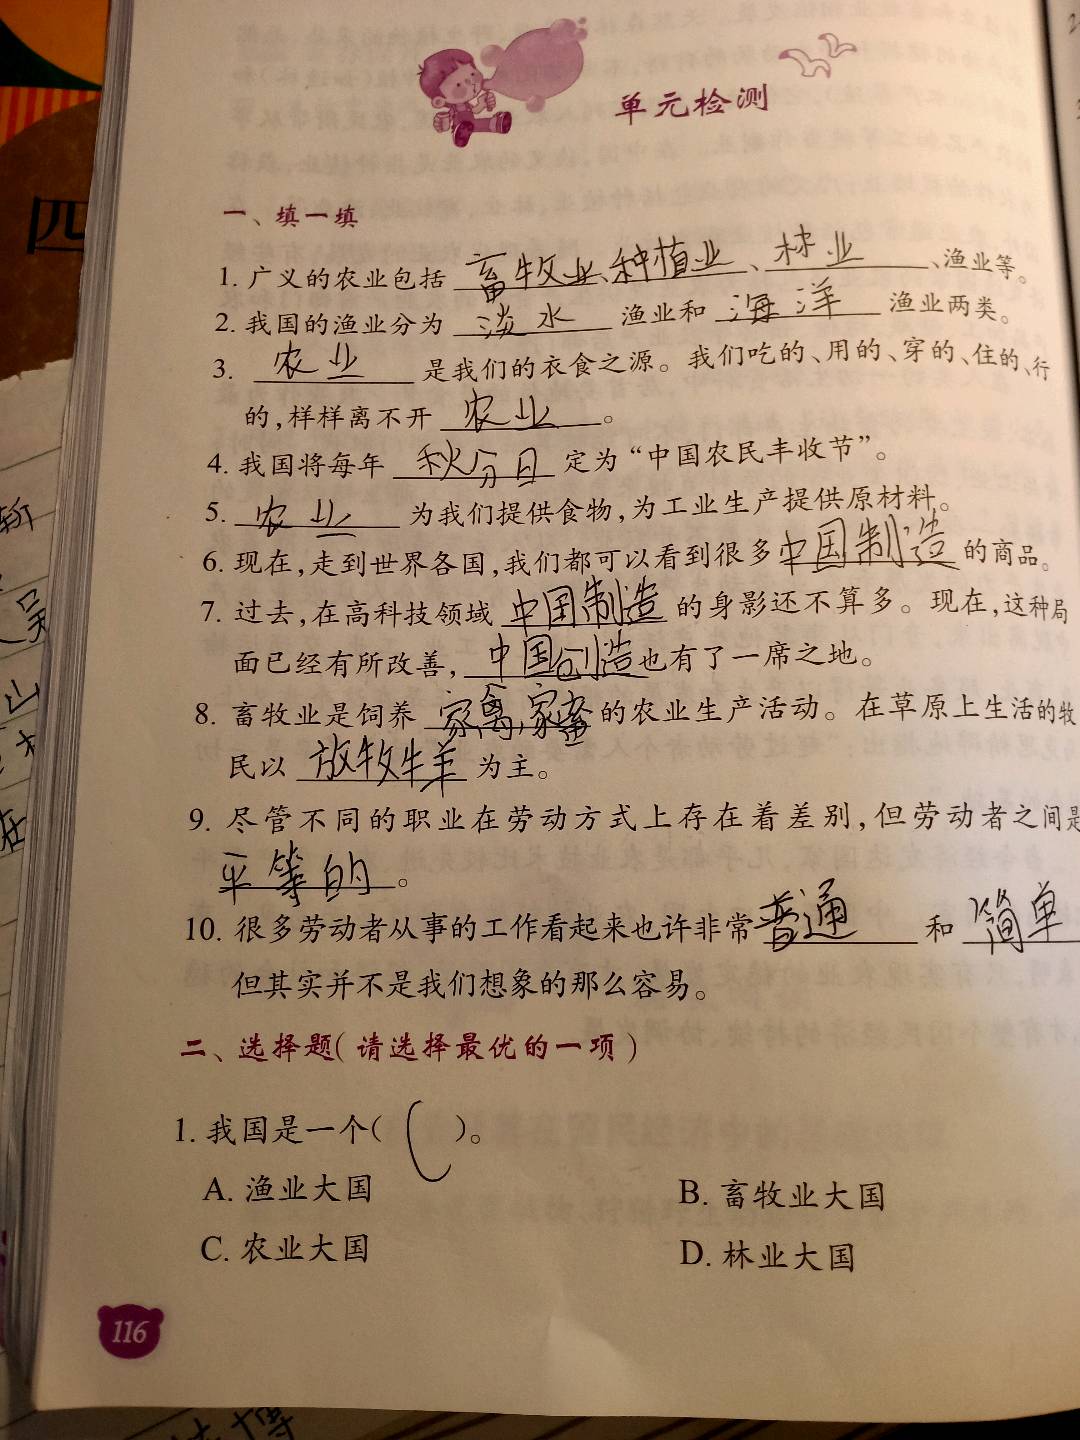 单元检测
四
一、填一填
1. 广义的农业包括 畜牧业、种植业、林业、渔业等。
2. 我国的渔业分为 淡水 渔业和 海洋 渔业两类。
3. 农业 是我们的衣食之源。我们吃的、用的、穿的、住的、行
的,样样离不开 农业。
4. 我国将每年 秋分日 定为“中国农民丰收节”。
5. 农业 为我们提供食物,为工业生产提供原材料。
6. 现在,走到世界各国,我们都可以看到很多中国制造的商品。
7. 过去,在高科技领域 中国制造 的身影还不算多。现在,这种局
面已经有所改善, 中国创造也有了一席之地。
8. 畜牧业是饲养 家禽,家畜 的农业生产活动。在草原上生活的牧
民以 放牧牛羊 为主。
9. 尽管不同的职业在劳动方式上存在着差别,但劳动者之间是
平等的。
10. 很多劳动者从事的工作看起来也许非常普通 和 简单
但其实并不是我们想象的那么容易。
二、选择题(请选择最优的一项)
1. 我国是一个( C )。
A. 渔业大国 B. 畜牧业大国
C. 农业大国 D. 林业大国
116